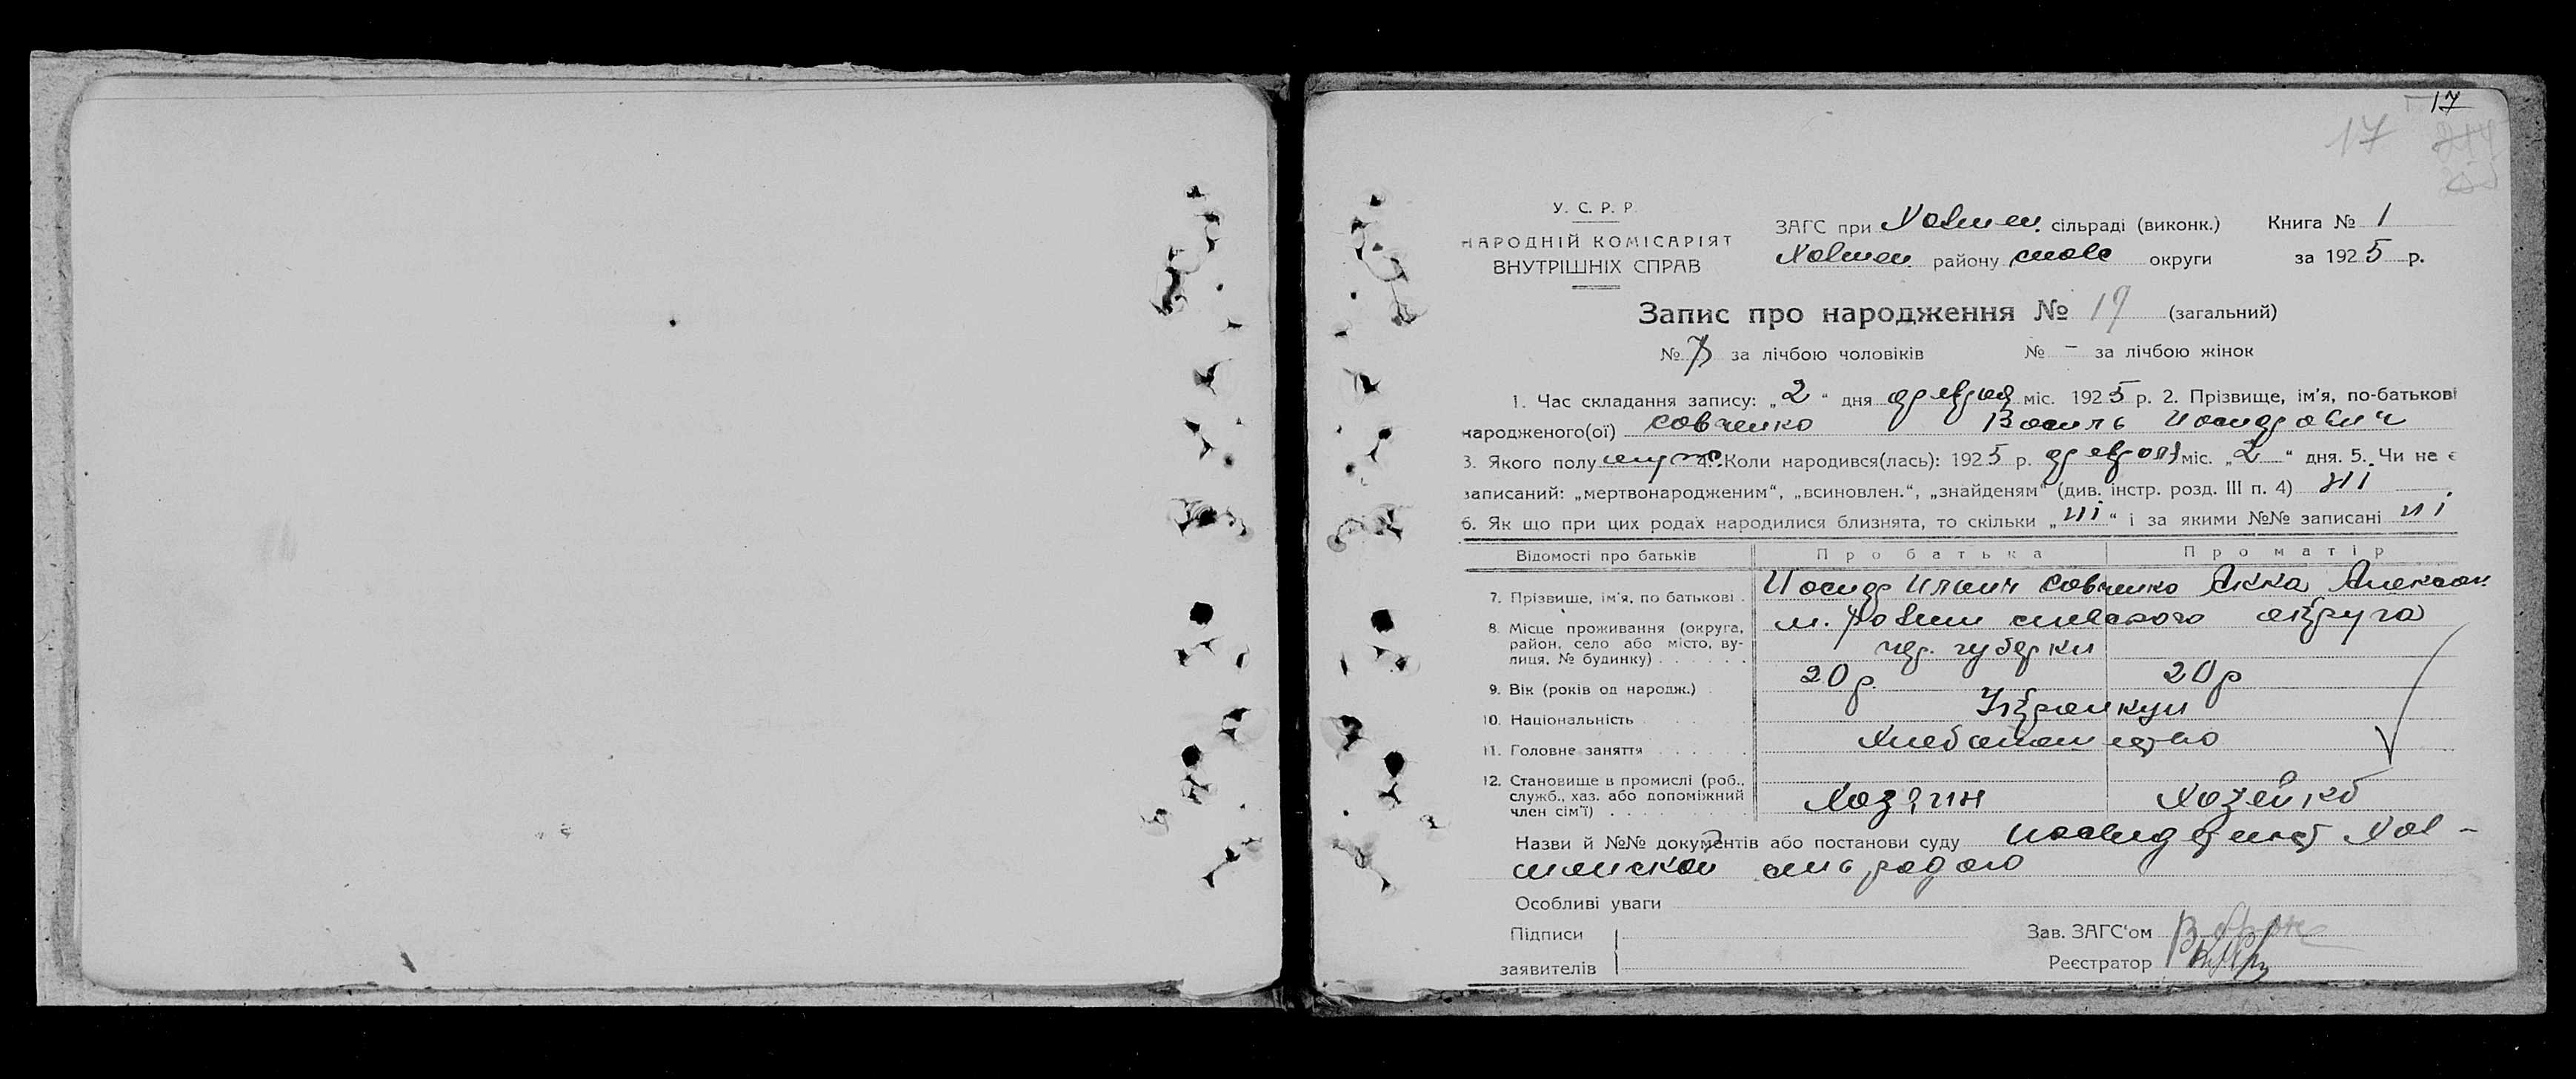 17
17
У. С. Р. Р.
НАРОДНІЙ КОМІСАРІЯТ
ВНУТРІШНІХ СПРАВ
ЗАГС при Холмен. сільраді (виконк.) Книга № 1
Холмен району округи за 1925 р.
Запис про народження № (загальний)
№ 7 за лічбою чоловіків № - за лічбою жінок
1. Час складання запису: „2“ дня февраля міс. 1925 р. 2. Прізвище, ім'я, по-батькові
народженого(ої) Савченко Василь Иосифович
3. Якого полу муж. 4. Коли народився(лась): 1925 р. февраля міс. „2“ дня. 5. Чи не є
записаний: „мертвонародженим“, „всиновлен.“, „знайденям“ (див. інстр. розд. III п. 4) ні
6. Як що при цих родах народилися близнята, то скільки „ні“ і за якими №№ записані ні
Відомості про батьків Про батька Про матір
7. Прізвище, ім'я, по батькові . Иосиф Ильич Савченко Анна Алексан.
8. Місце проживання (округа, район, село або місто, вулиця, № будинку) м. сновского округа
чер. губерни
9. Вік (років од народж.) 20 р. 20 р
10. Національність Українкци
11. Головне заняття Хлебопашество
12. Становище в промислі (роб., служб., хаз. або допоміжний член сім'ї) Хозяин Хозейка
Назви й №№ документів або постанови суду Хол-
менской сльрадою
Особливі уваги
Підписи
заявителів
Зав. ЗАГС'ом
Реєстратор